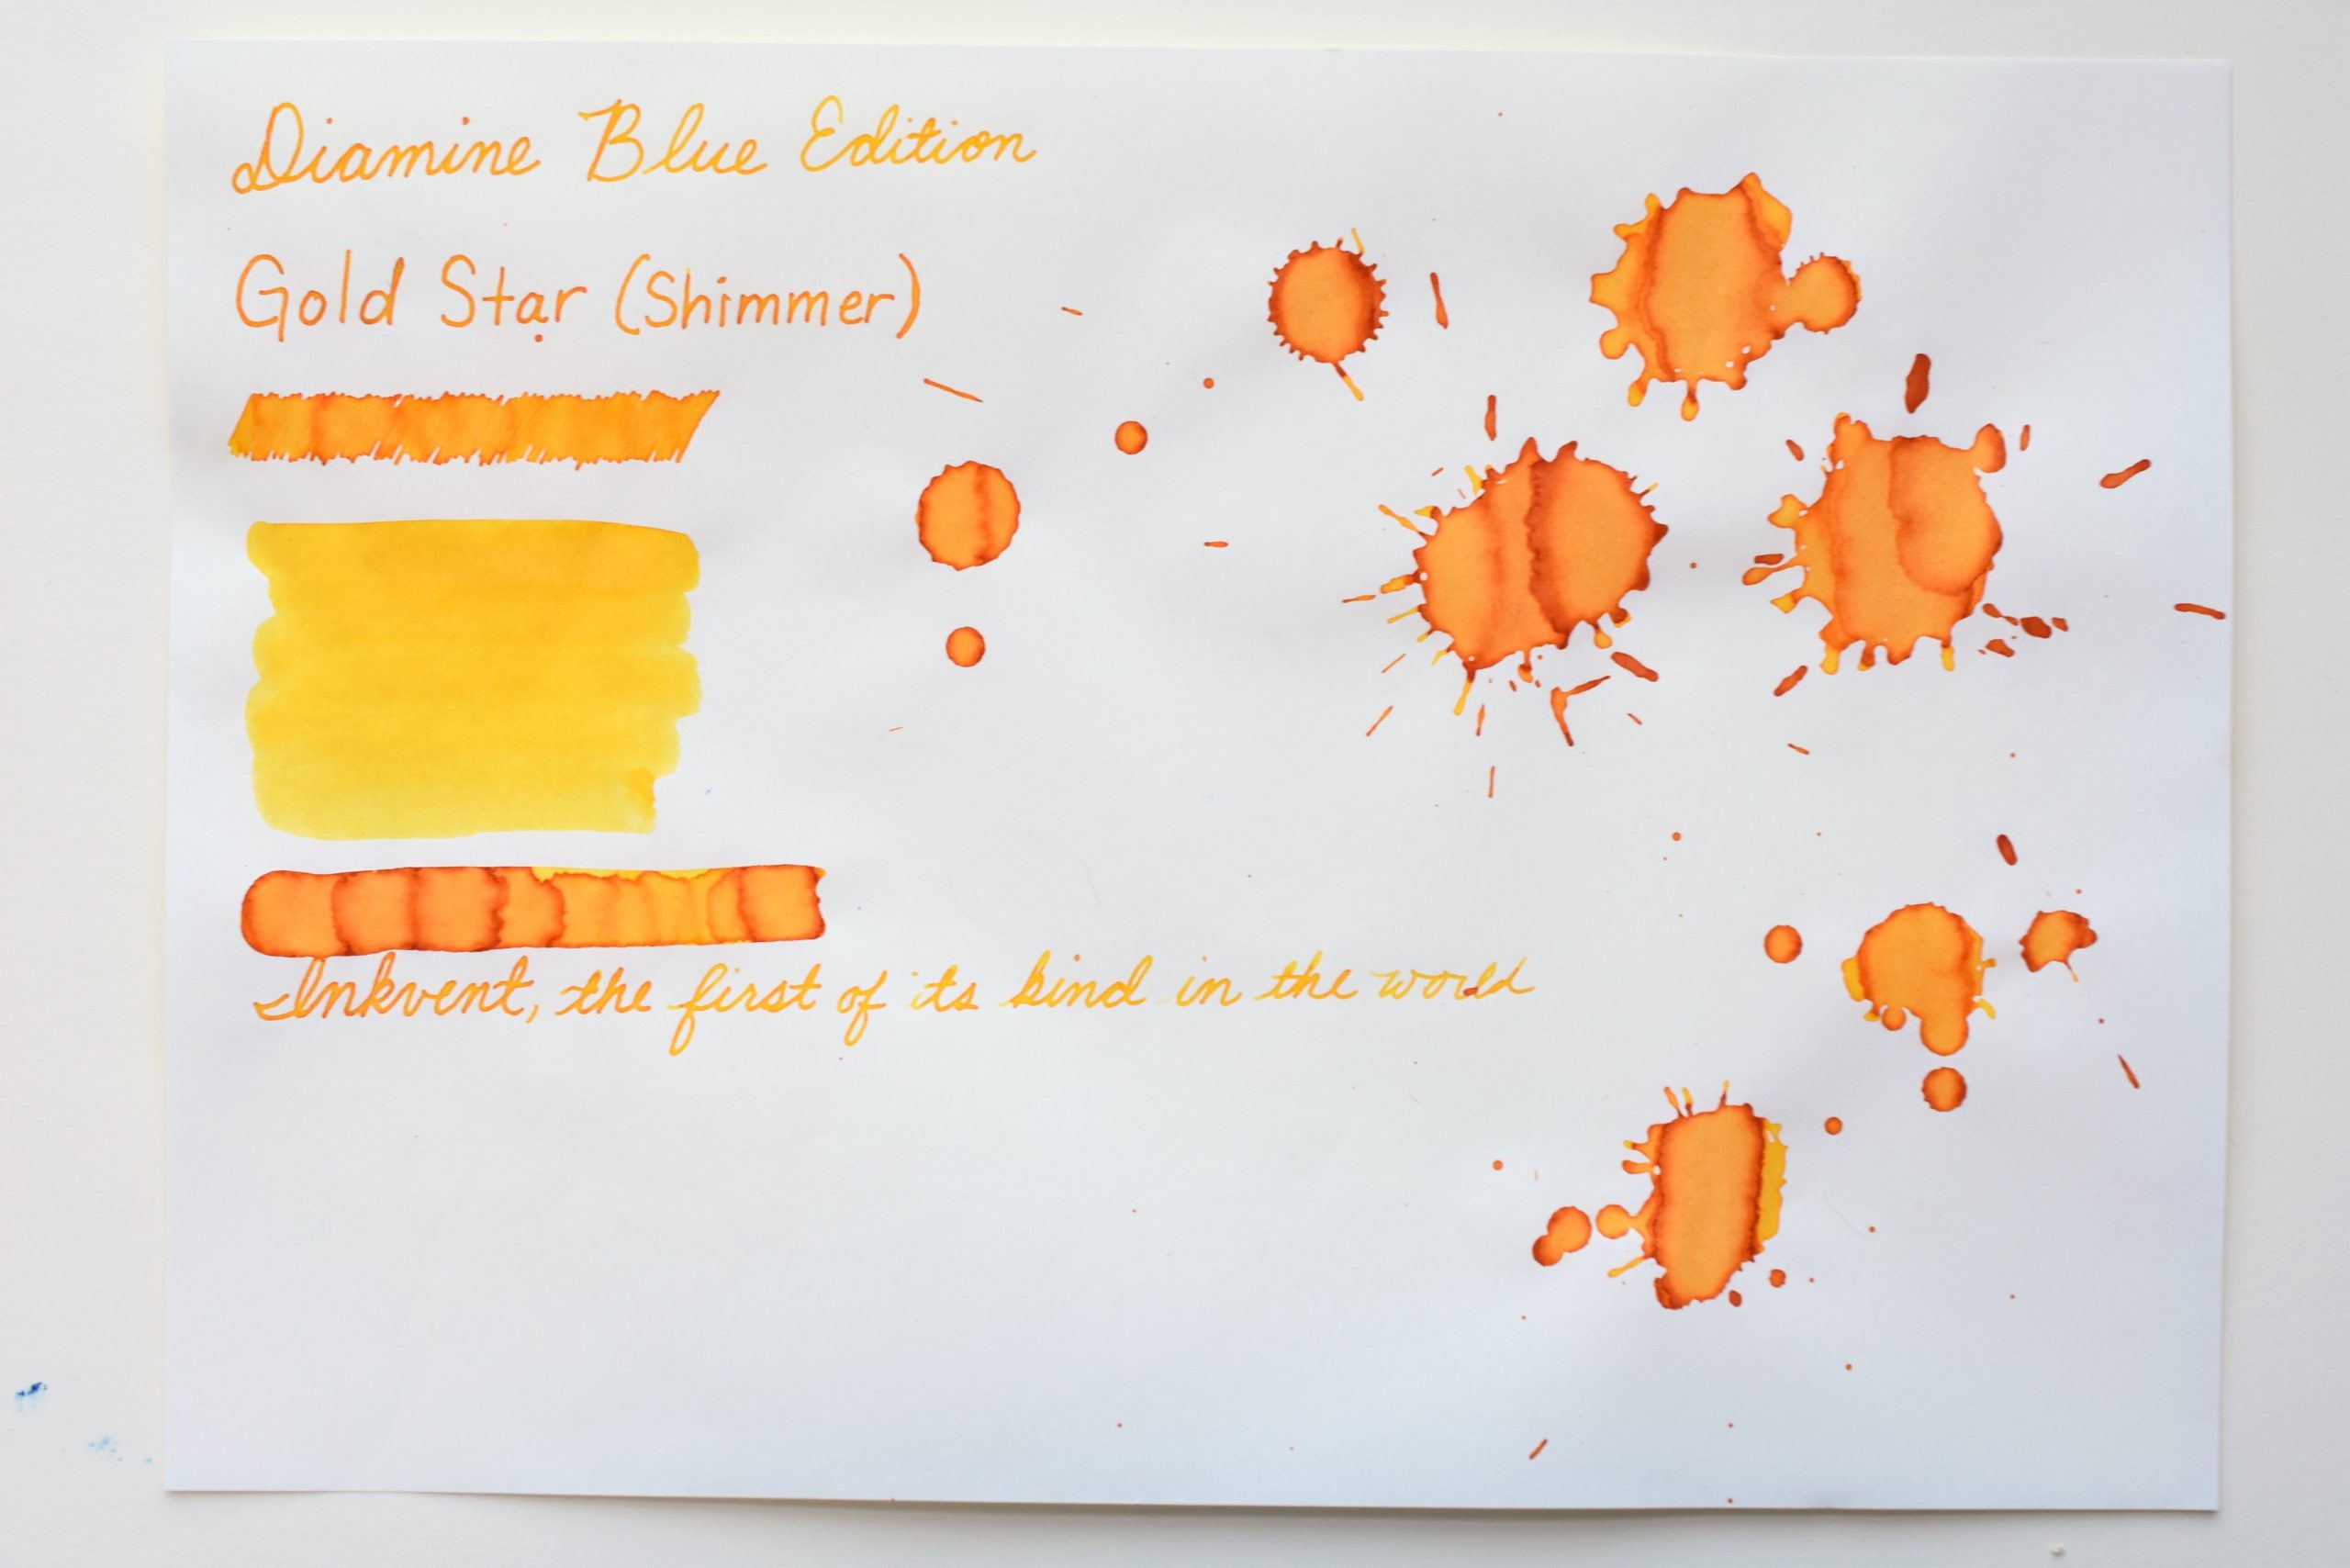 Diamine Blue Edition
Gold Star (Shimmer)
Inkvent, the first of its kind in the world